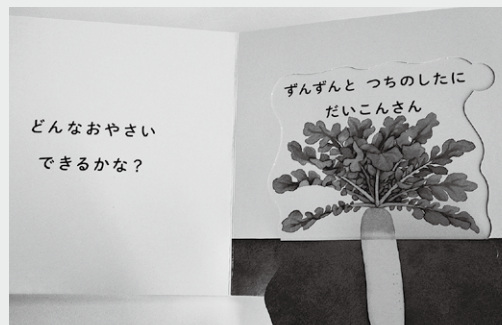 どんなおやさい
できるかな？
ずんずんと つちのしたに
だいこんさん